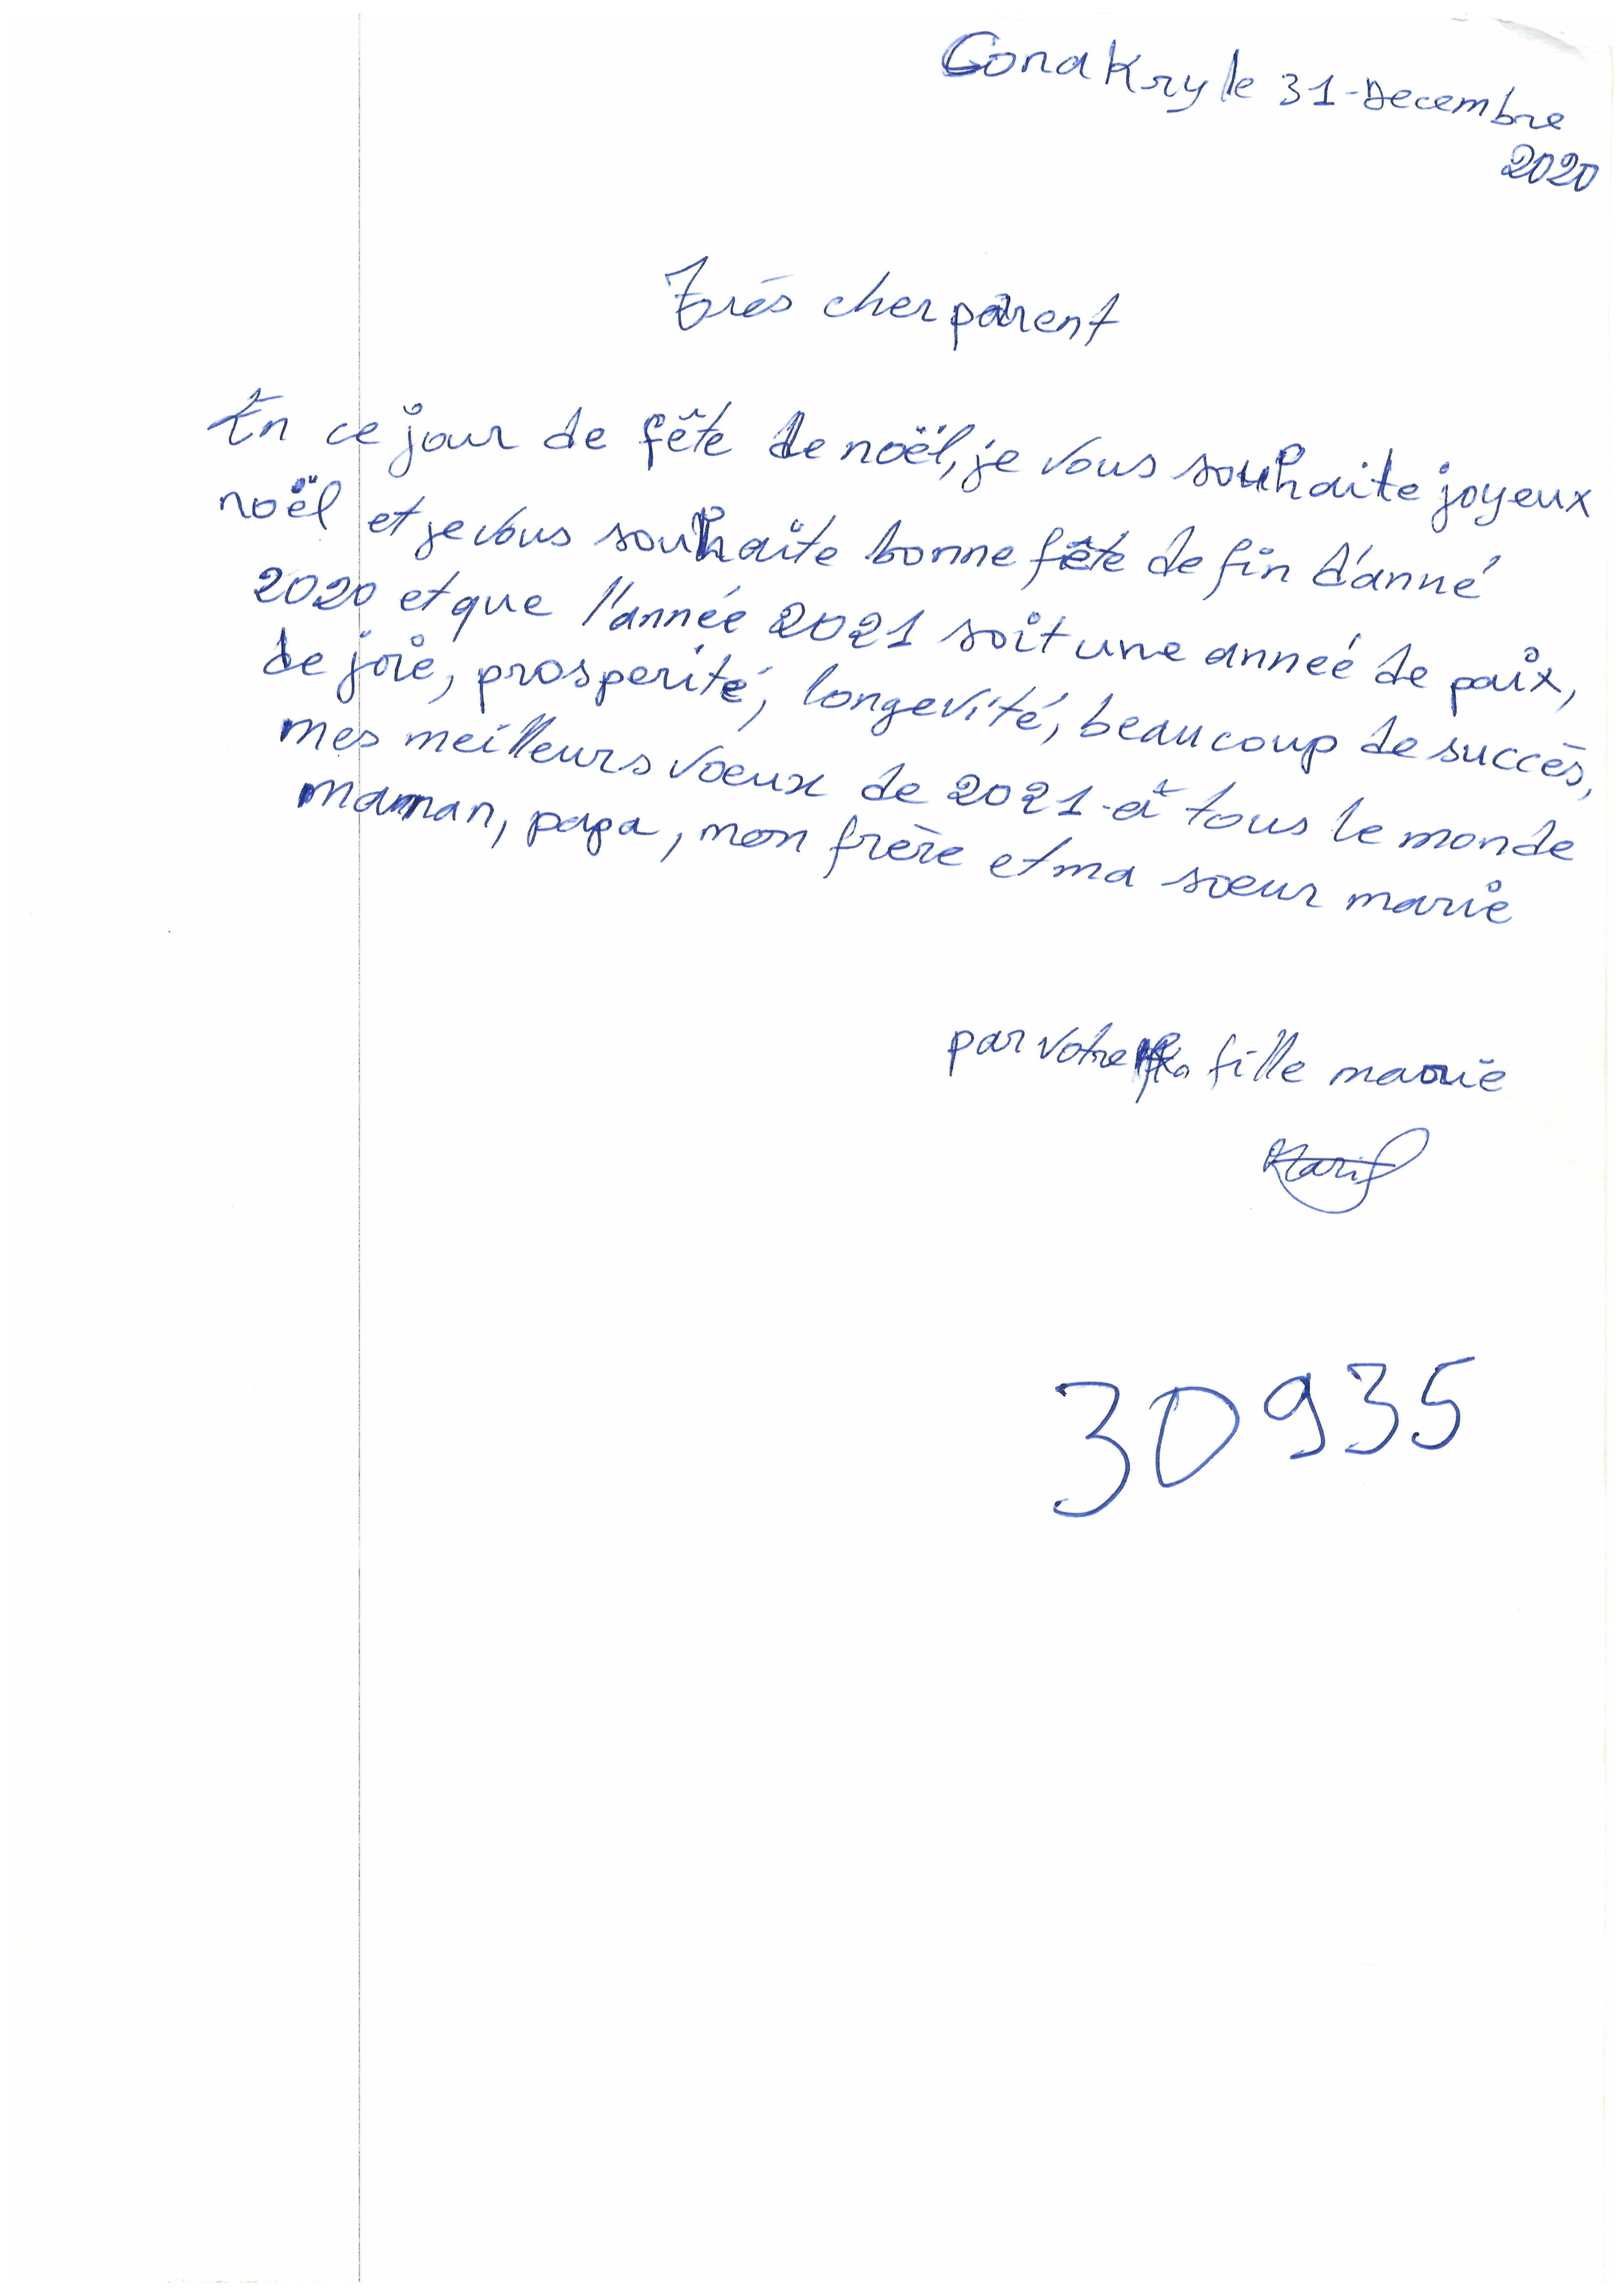 Conakry le 31-Decembre
2020
Trés cher parent
En ce jour de fête de noël, je vous souhaite joyeux
noël et je vous souhaite bonne fête de fin d'anné
2020 et que l'année 2021 soit une anneé de paix,
de joie, prosperité, longevité, beaucoup de succès,
mes meilleurs voeux de 2021 - à tous le monde
maman, papa, mon frère et ma soeur marie
par votre fille marie
30935